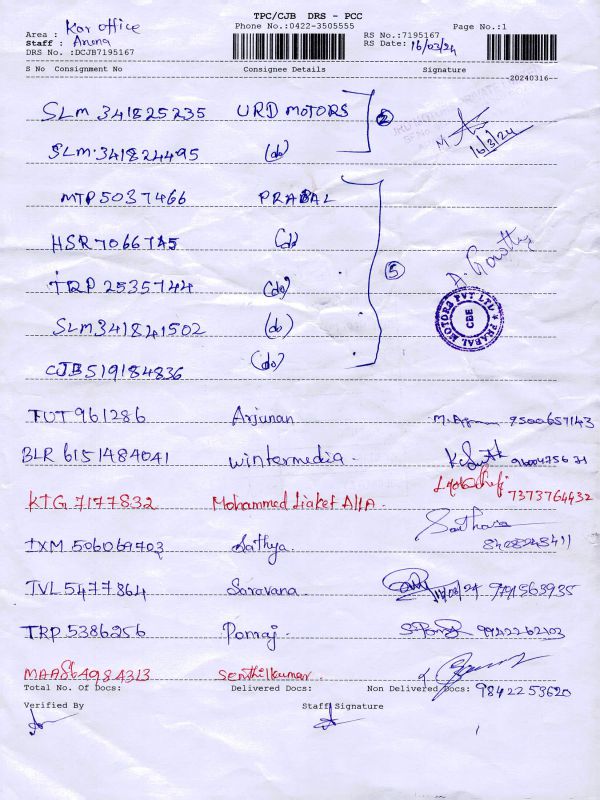 TPC/CJB DRS - PCC
Phone No.:0422-3505555
Page No.:1
Area : Kor office
Staff : Aruna
DRS No. :DCJB7195167
RS No.:7195167
RS Date: 16/03/24
S No Consignment No Consignee Details Signature
20240316
SLM 341825235 URD MOTORS ②
SLM 341824495 (do)
16/3/24
MTP5037466 PRABAL ⑤
HSR 7066745 (do)
TRP 2535744 (do)
SLM341841502 (do)
CJB519184836 (do)
PRABAL MOTORS PVT LTD ★ CBE
TUT 961286 Arjunan 9500657143
BLR 6151484041 wintermedia.
KTG 7177832 Mohammed Liaket Alla. 7373764432
IXM 506069703 Sathya.
TVL 5477864 Saravana 9791563935
TRP 5386256 Ponraj. 9942262103
MAA564984313 Senthilkumar.
Total No. Of Docs: Delivered Docs: Non Delivered Docs: 9842253620
Verified By Staff Signature